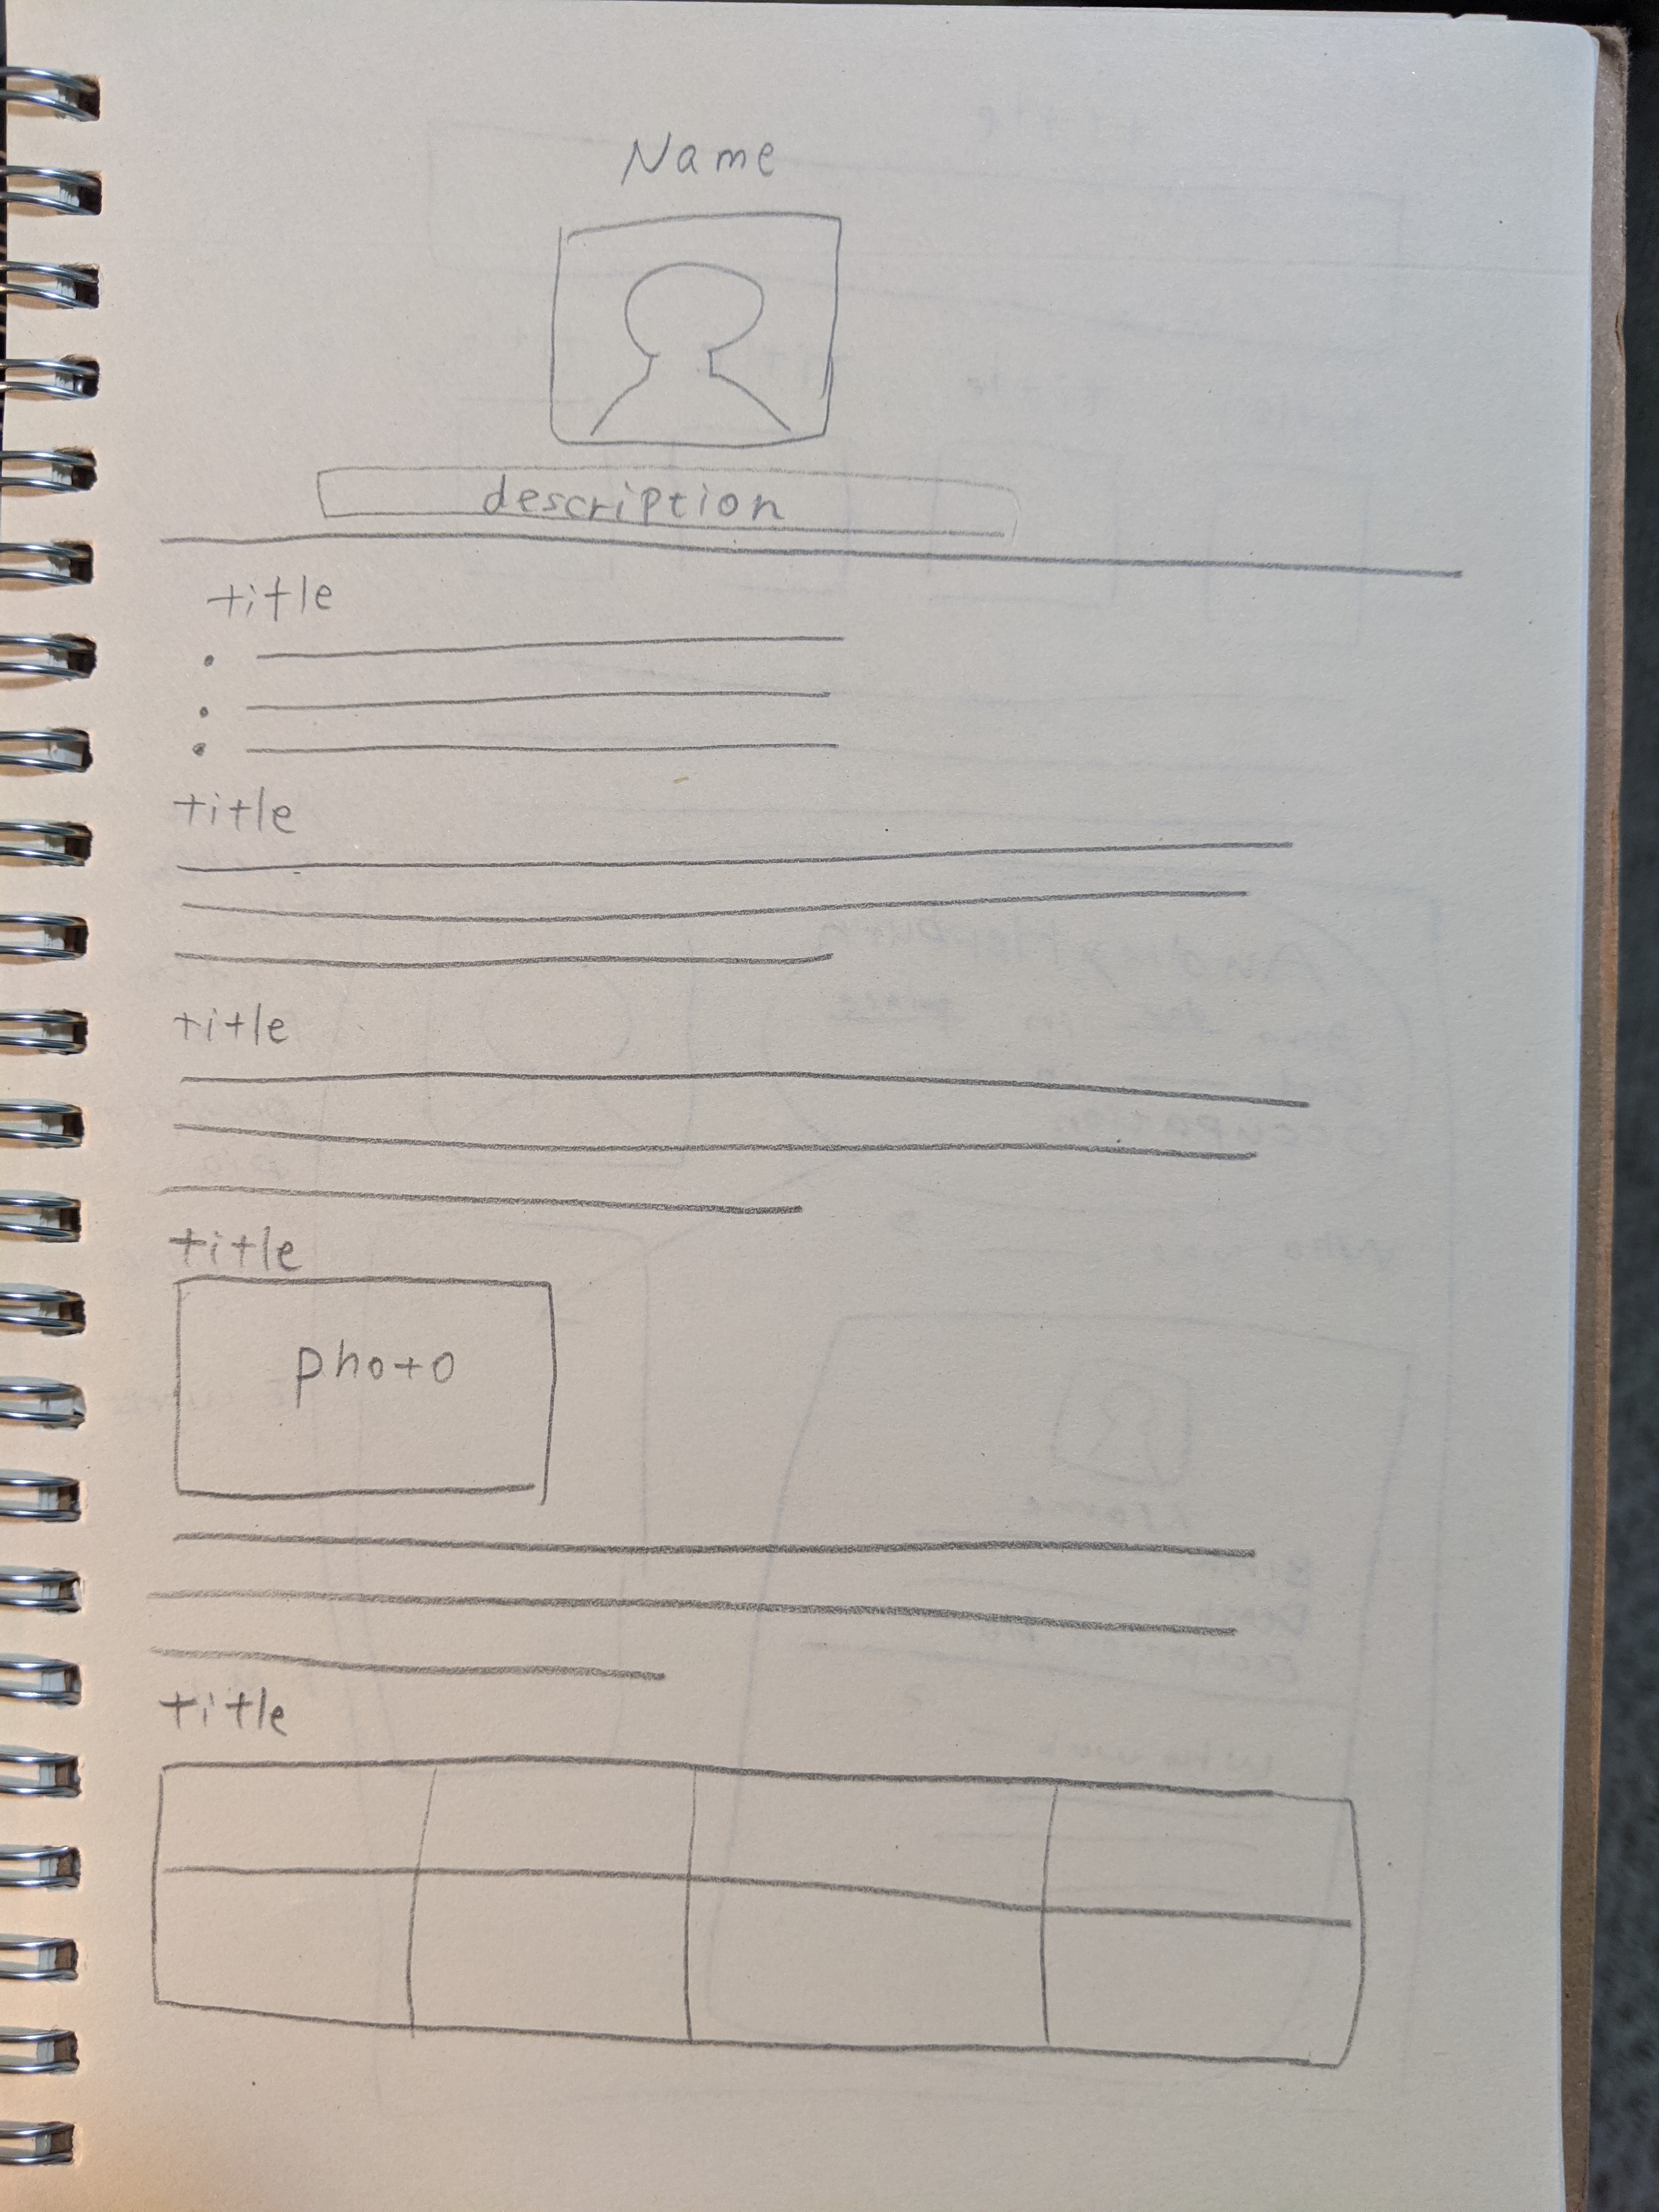 Name
description
title
title
title
title
photo
title